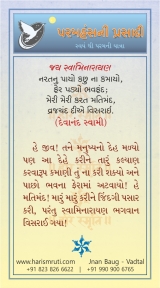 પરમહંસની પ્રસાદી
સ્વયં થી પરમની યાત્રા
જય સ્વામિનારાયણ
નરતનુ પાયો કછુ ના કમાયો,
ફેર પડ્યો ભવફંદ;
મેરી મેરી કરત મતિમંદ,
વ્રજચંદ દીએ વિસરાઈ.
(દેવાનંદ સ્વામી)
હે જીવ! તને મનુષ્યનો દેહ મળ્યો
પણ આ દેહ કરીને તારું કલ્યાણ
કરવારૂપ કમાણી તું ના કરી શક્યો અને
પાછો ભવના ફેરામાં અટવાયો! હે
મતિમંદ! મારું મારું કરીને જિંદગી પસાર
કરી, પરંતુ સ્વામિનારાયણ ભગવાન
વિસરાઈ ગયા!
www.harismruti.com
Jnan Baug - Vadtal
+91 823 826 6622
+91 990 900 6765